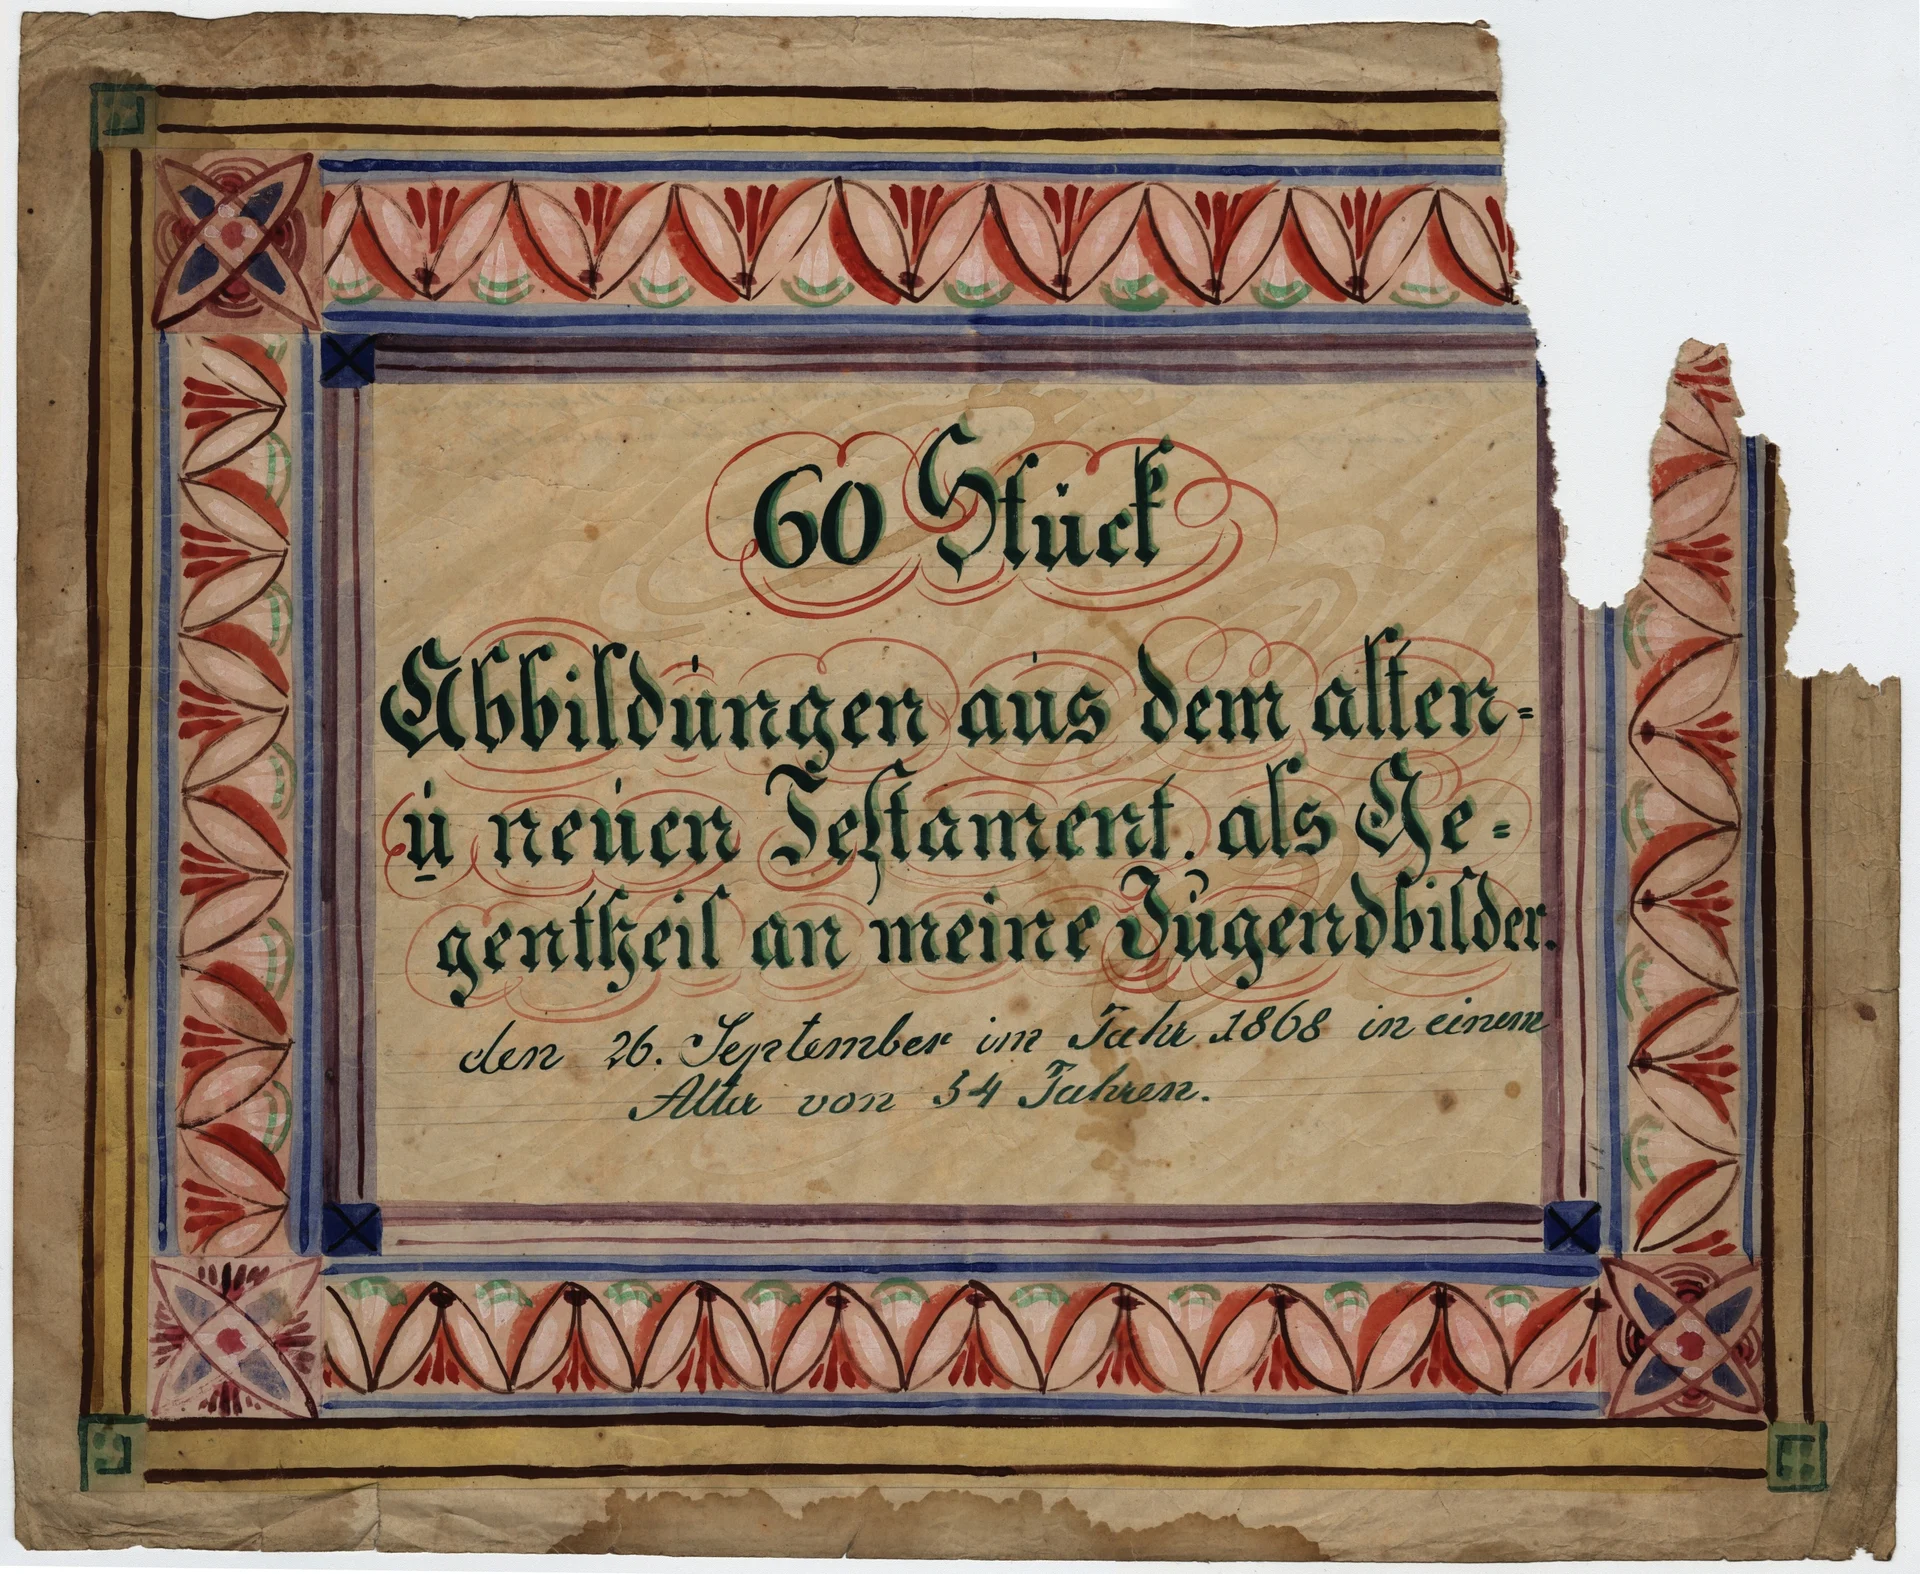 60 Stück
Abbildungen aus dem alten-
u neuen Testament. als Ge-
gentheil an meine Jugendbilder.
den 26. September im Jahr 1868 in einem
Alter von 54 Jahren.